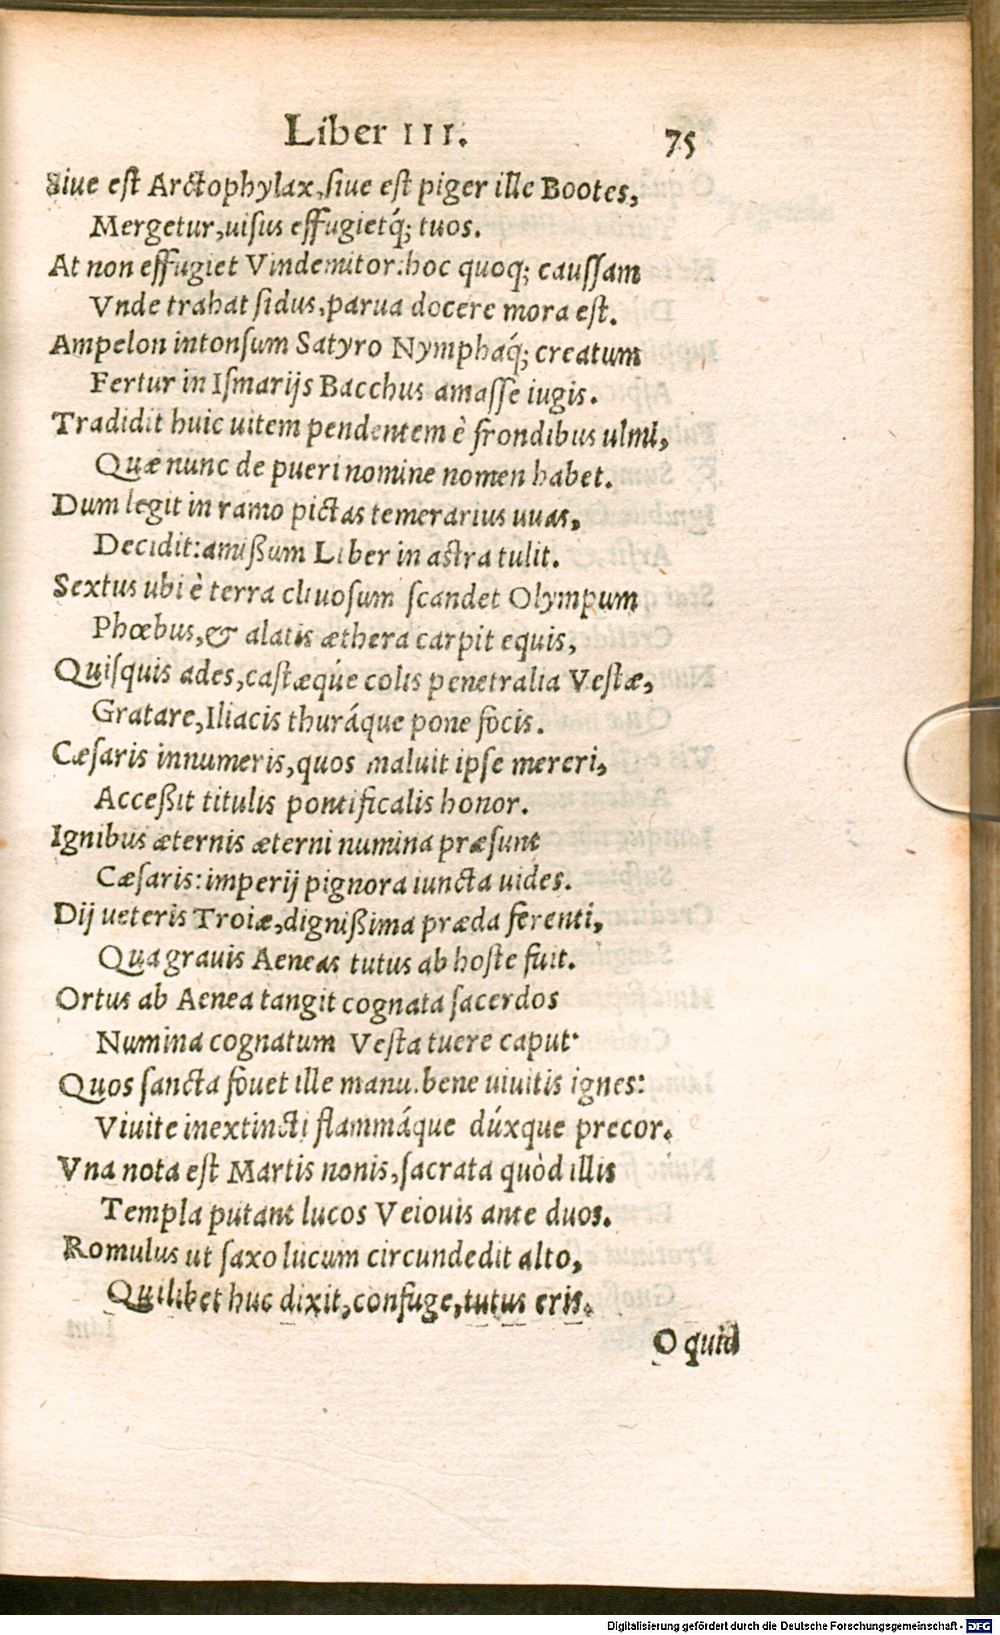 Liber III.
75
Siue est Arctophylax, siue est piger ille Bootes,
Mergetur, uisus effugietq́; tuos.
At non effugiet Vindemitor: hoc quoq; caussam
Vnde trahat sidus, parua docere mora est.
Ampelon intonsum Satyro Nymphaq́; creatum
Fertur in Ismarijs Bacchus amasse iugis.
Tradidit huic uitem pendentem è frondibus ulmi,
Quæ nunc de pueri nomine nomen habet.
Dum legit in ramo pictas temerarius uuas,
Decidit: amißum Liber in astra tulit.
Sextus ubi è terra cliuosum scandet Olympum
Phœbus, & alatis æthera carpit equis,
Quisquis ades, castæq́ue colis penetralia Vestæ,
Gratare, Iliacis thuráque pone focis.
Cæsaris innumeris, quos maluit ipse mereri,
Acceßit titulis pontificalis honor.
Ignibus æternis æterni numina præsunt
Cæsaris: imperij pignora iuncta uides.
Dij ueteris Troiæ, dignißima præda ferenti,
Qua grauis Aeneas tutus ab hoste fuit.
Ortus ab Aenea tangit cognata sacerdos
Numina cognatum Vesta tuere caput.
Quos sancta fouet ille manu. bene uiuitis ignes:
Viuite inextincti flammáque dúxque precor.
Vna nota est Martis nonis, sacrata quòd illis
Templa putant lucos Veiouis ante duos.
Romulus ut saxo lucum circundedit alto,
Quilibet huc dixit, confuge, tutus eris.
O quid
Digitalisierung gefördert durch die Deutsche Forschungsgemeinschaft - DFG